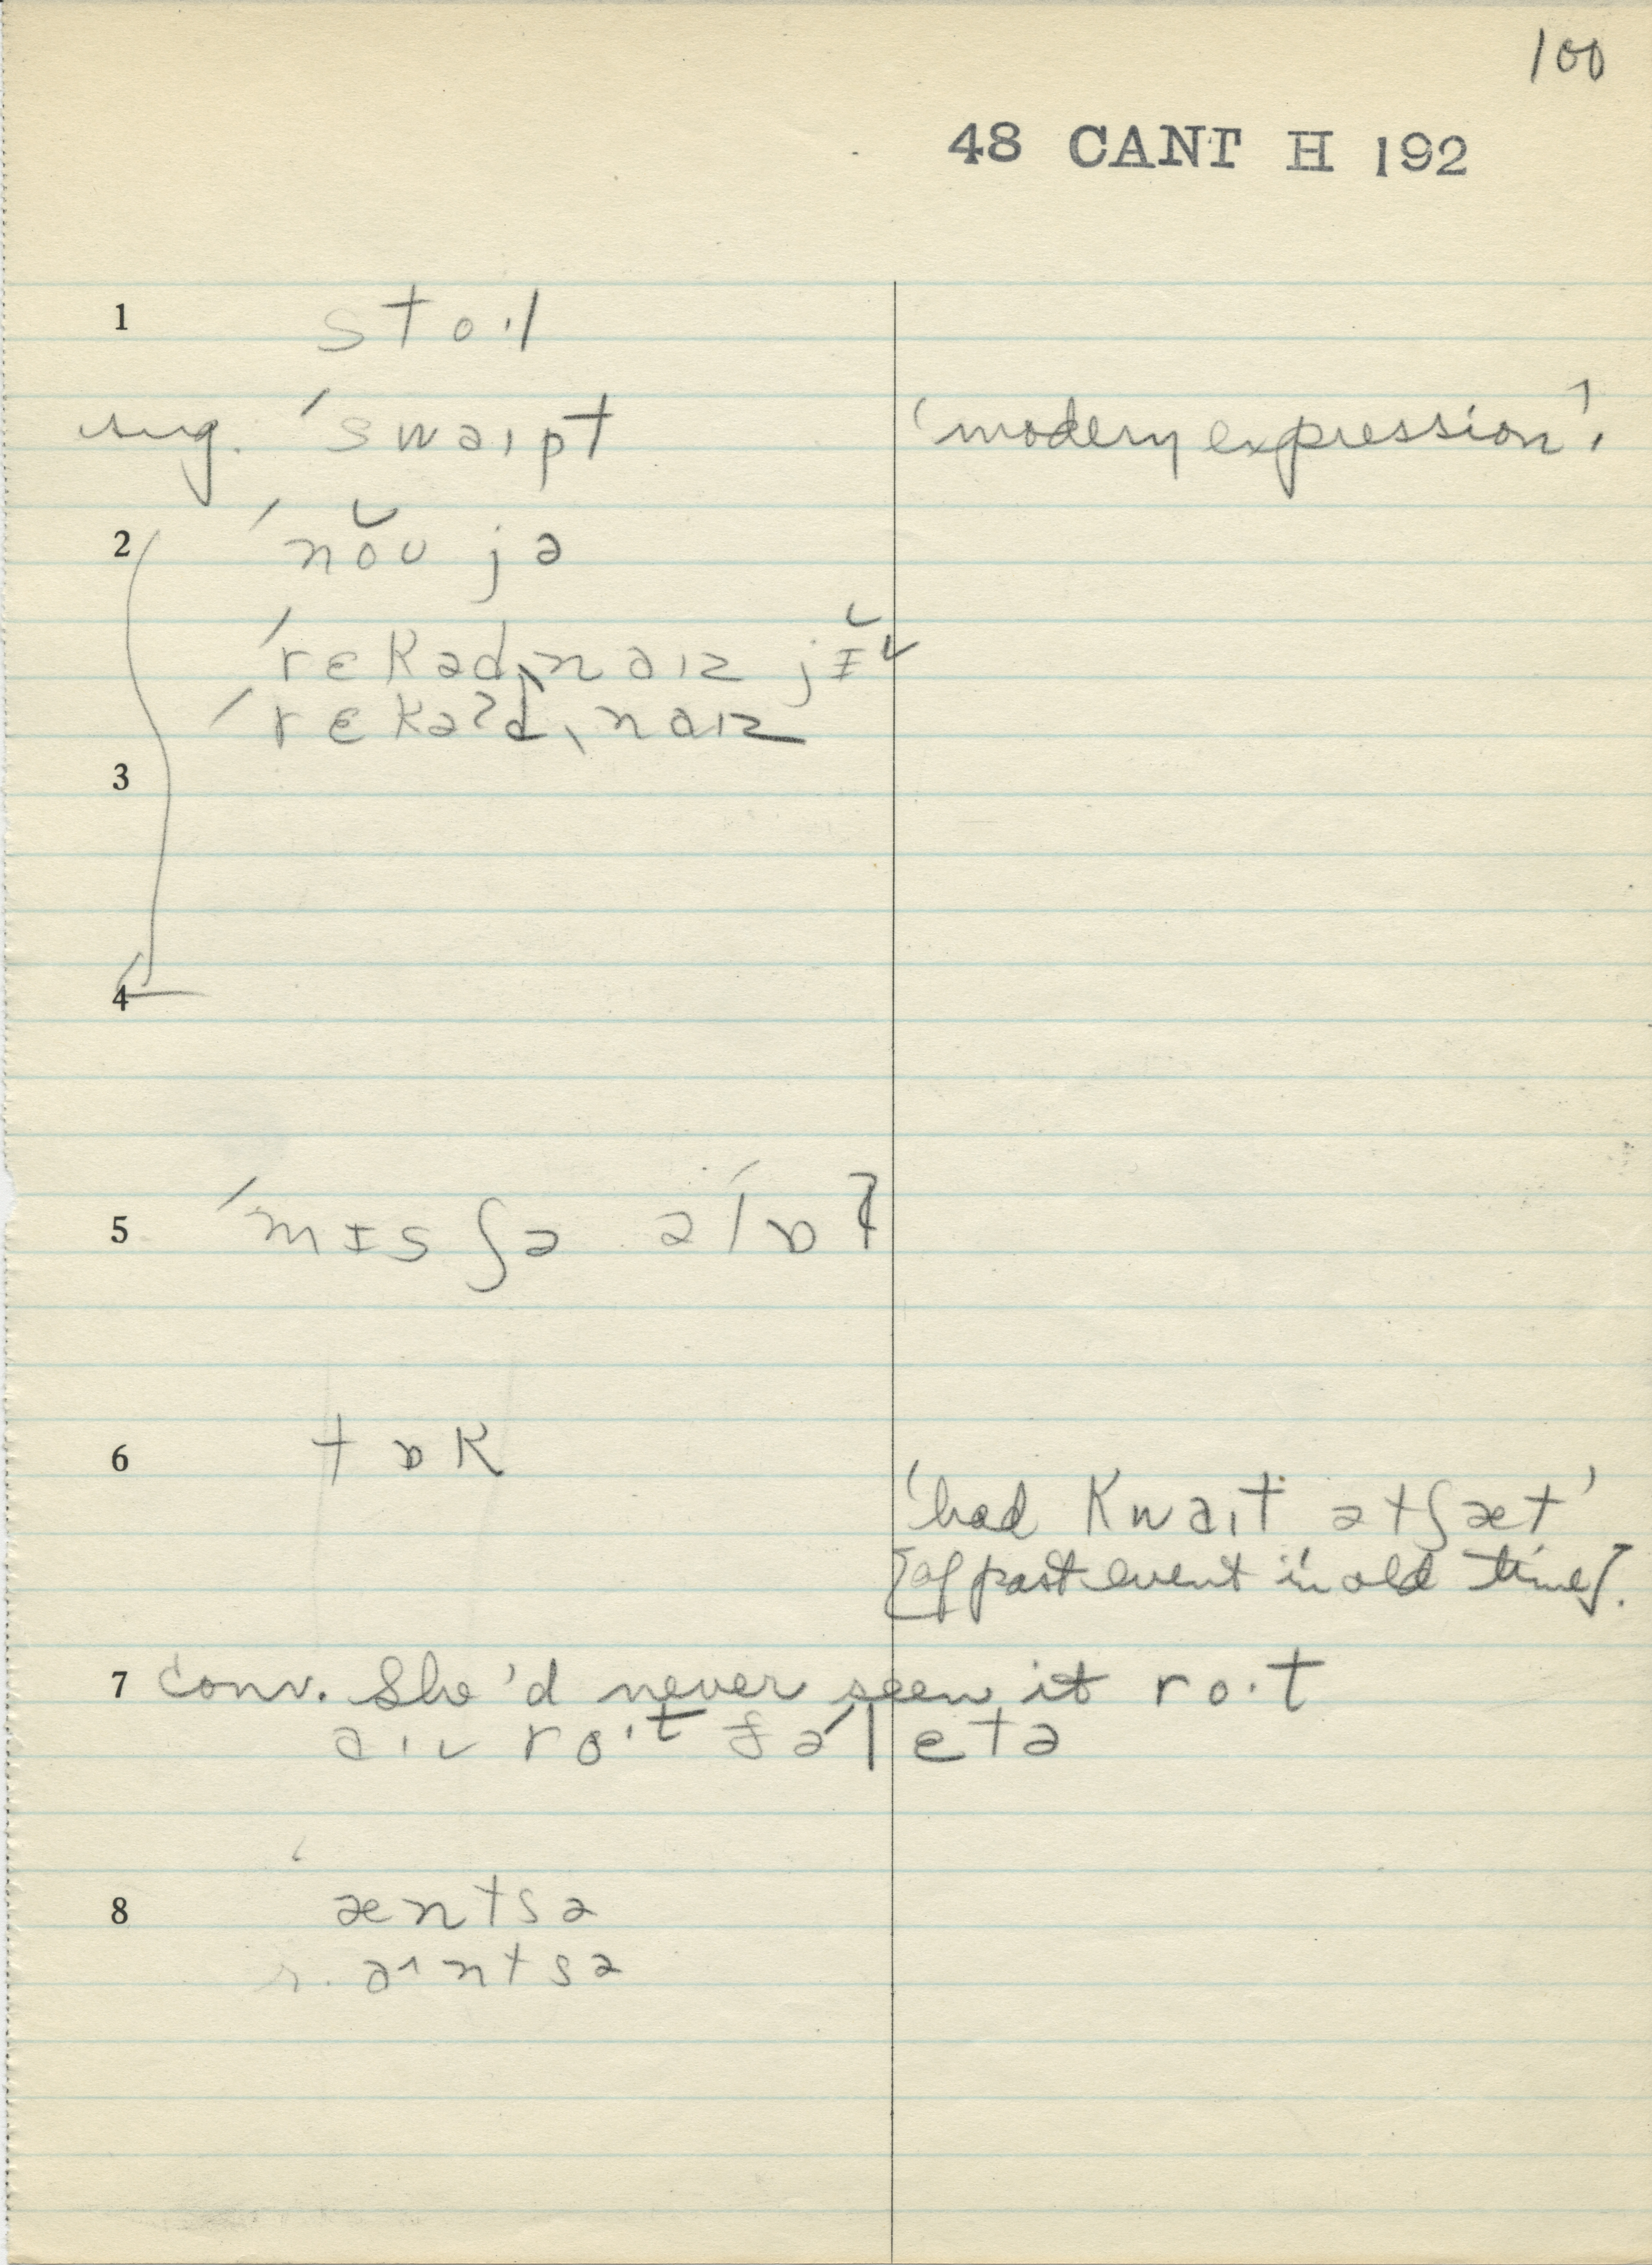 100
48 CANT H 192
1 sto·l
sug. ˈswaɪpt 'modern expression'.
2 ˈnŏʊ jə
ˈrɛkədˌnaɪz jɪ̆
ˈrɛkəʔdˌnaɪz
3
4
5 ˈmɪs ʃə əˈlɒt
6 tɒk
'had kwaɪt ətʃæt'
[of past event in old time].
7 conv. She'd never seen it ro·t
aɪv ro·t fəˈletə
8 æntsə
r. aˑntsə